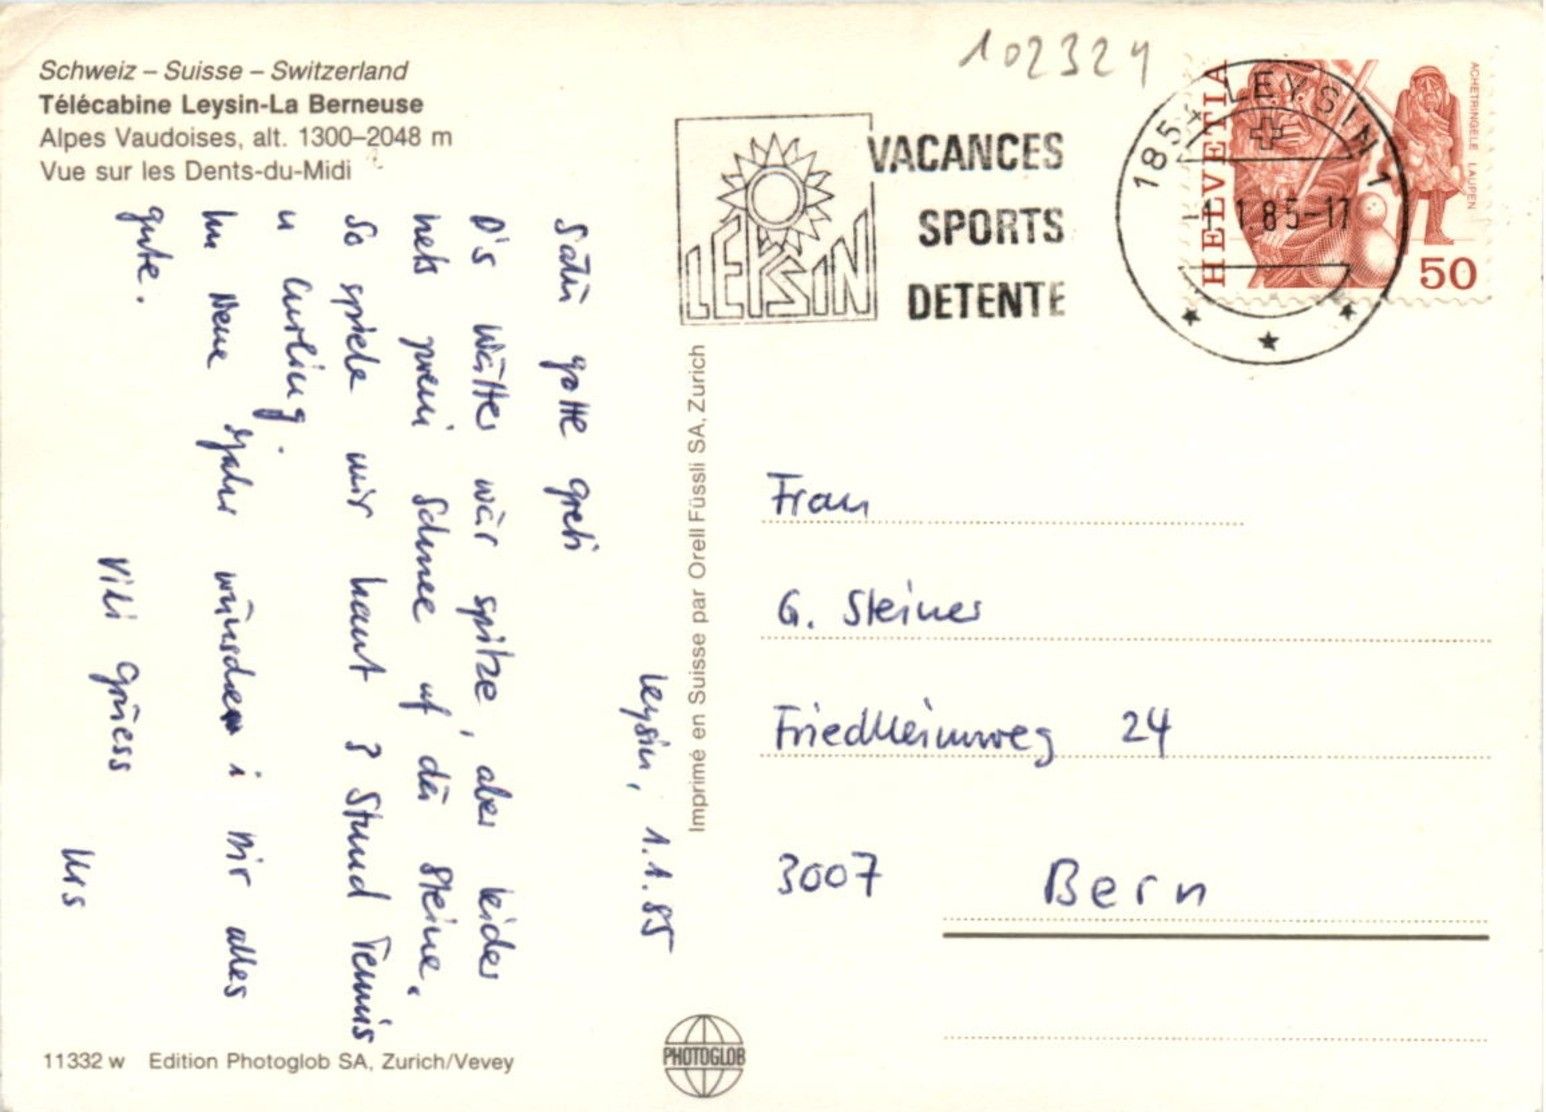 Schweiz – Suisse – Switzerland
Télécabine Leysin-La Berneuse
Alpes Vaudoises, alt. 1300–2048 m
Vue sur les Dents-du-Midi
Leysin, 1.1.85
Salü gotte Greti
D's Wätter wär spitze, aber leider
hets weni Schnee uf de Steine.
So spiele mir haut 3 Stund Tennis
u Curling.
Im Neue Jahr wünsche i Dir alles
gute.
Vili Grüess
Urs
11332 w Edition Photoglob SA, Zurich/Vevey
Imprimé en Suisse par Orell Füssli SA, Zurich
PHOTOGLOB
102324
LEYSIN
VACANCES
SPORTS
DETENTE
1854 LEYSIN 1
1.85-17
HELVETIA
ACHETRINGELE LAUPEN
50
Frau
G. Steiner
Friedheimweg 24
3007 Bern